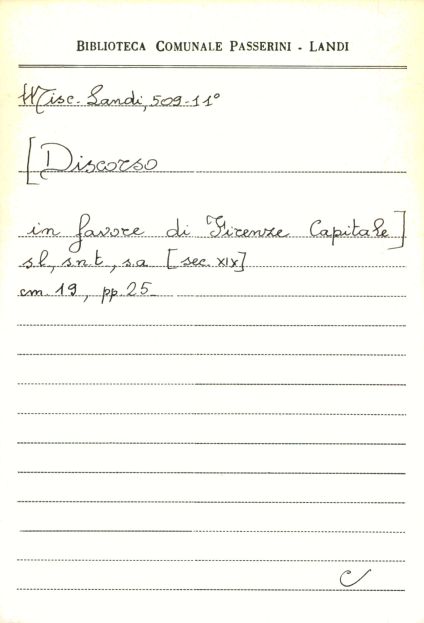 BIBLIOTECA COMUNALE PASSERINI - LANDI
Misc. Landi, 509-11°
[Discorso
in favore di Firenze Capitale]
s.l, s.n.t, s.a [sec. XIX]
cm. 19, pp. 25
C